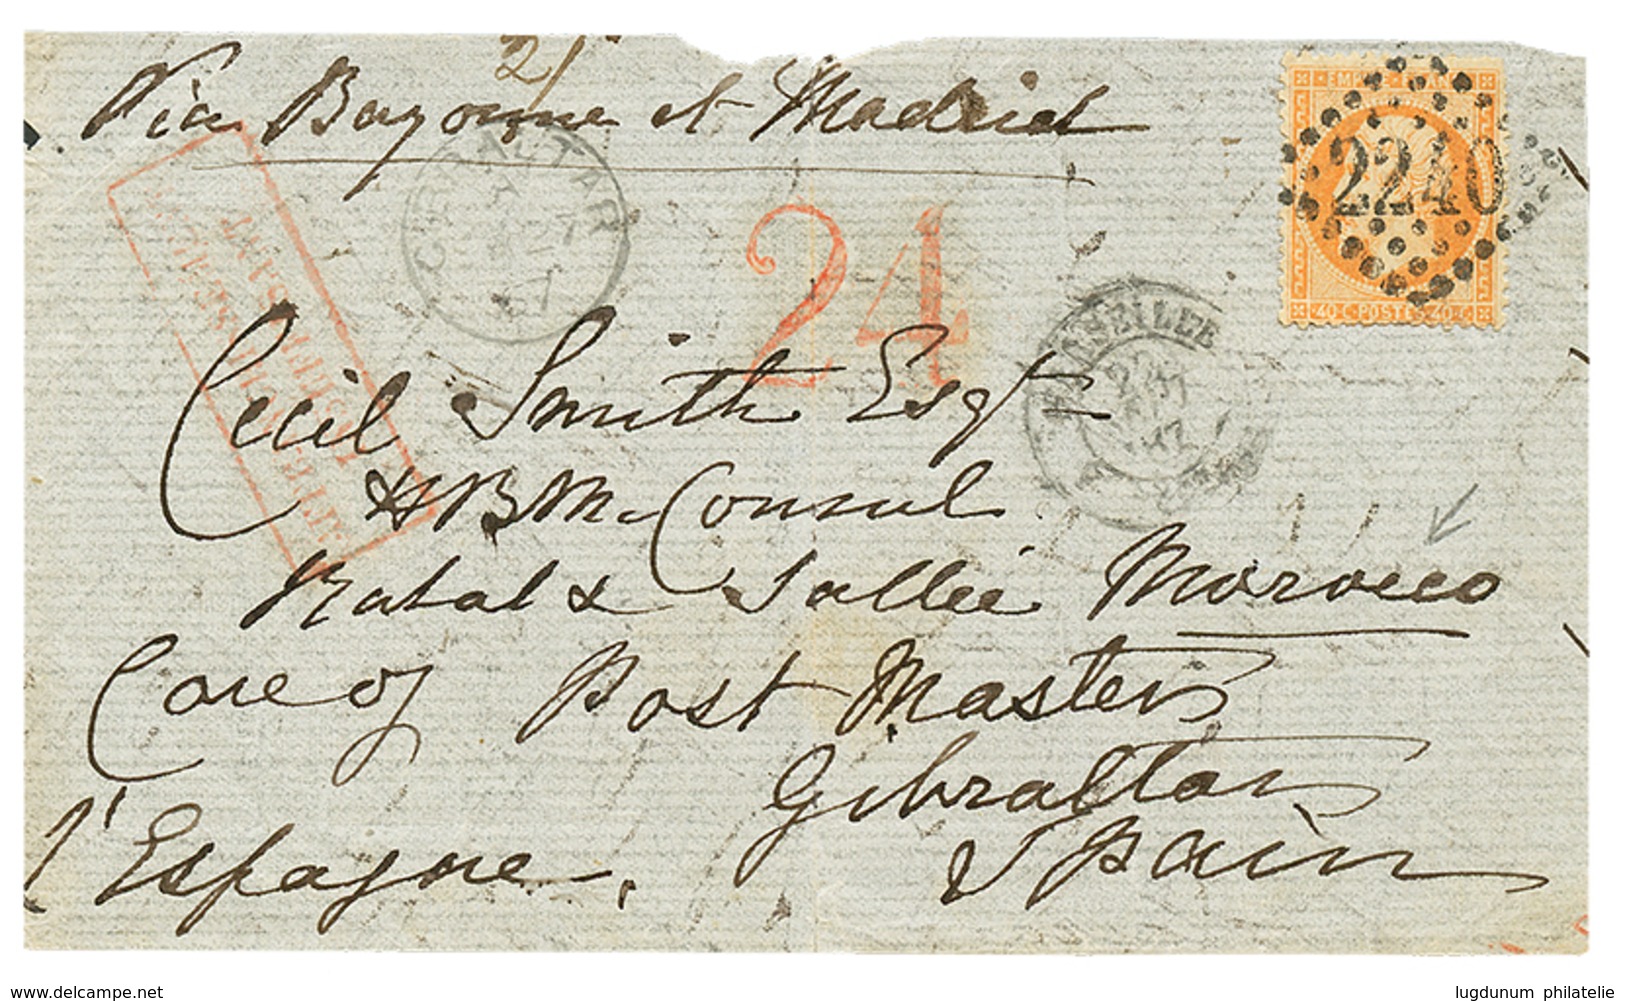 2/
Via Bayonne et Madrid
GIBRALTAR
24
2240
40 C. POSTES 40 C.
MARSEILLE
Cecil Smith Esqr
HBM Consul
Rabat & Sallee Morocco
Care of Post Masters
Gibraltar
l'Espagne. Spain
www.delcampe.net
lugdunum philatelie